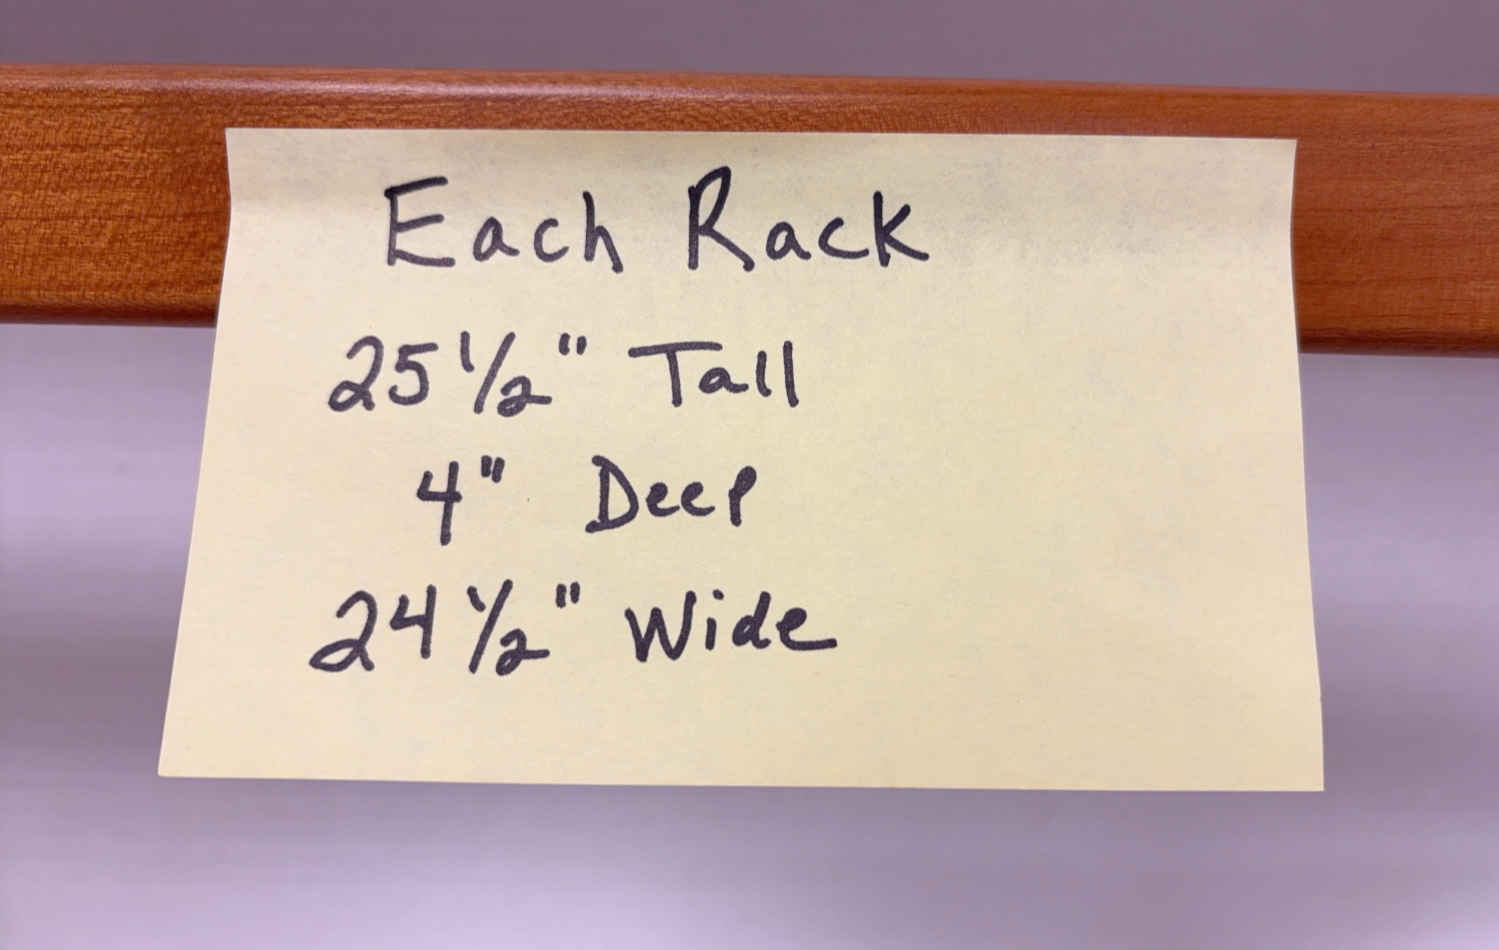 Each Rack
25 1/2" Tall
4" Deep
24 1/2" Wide